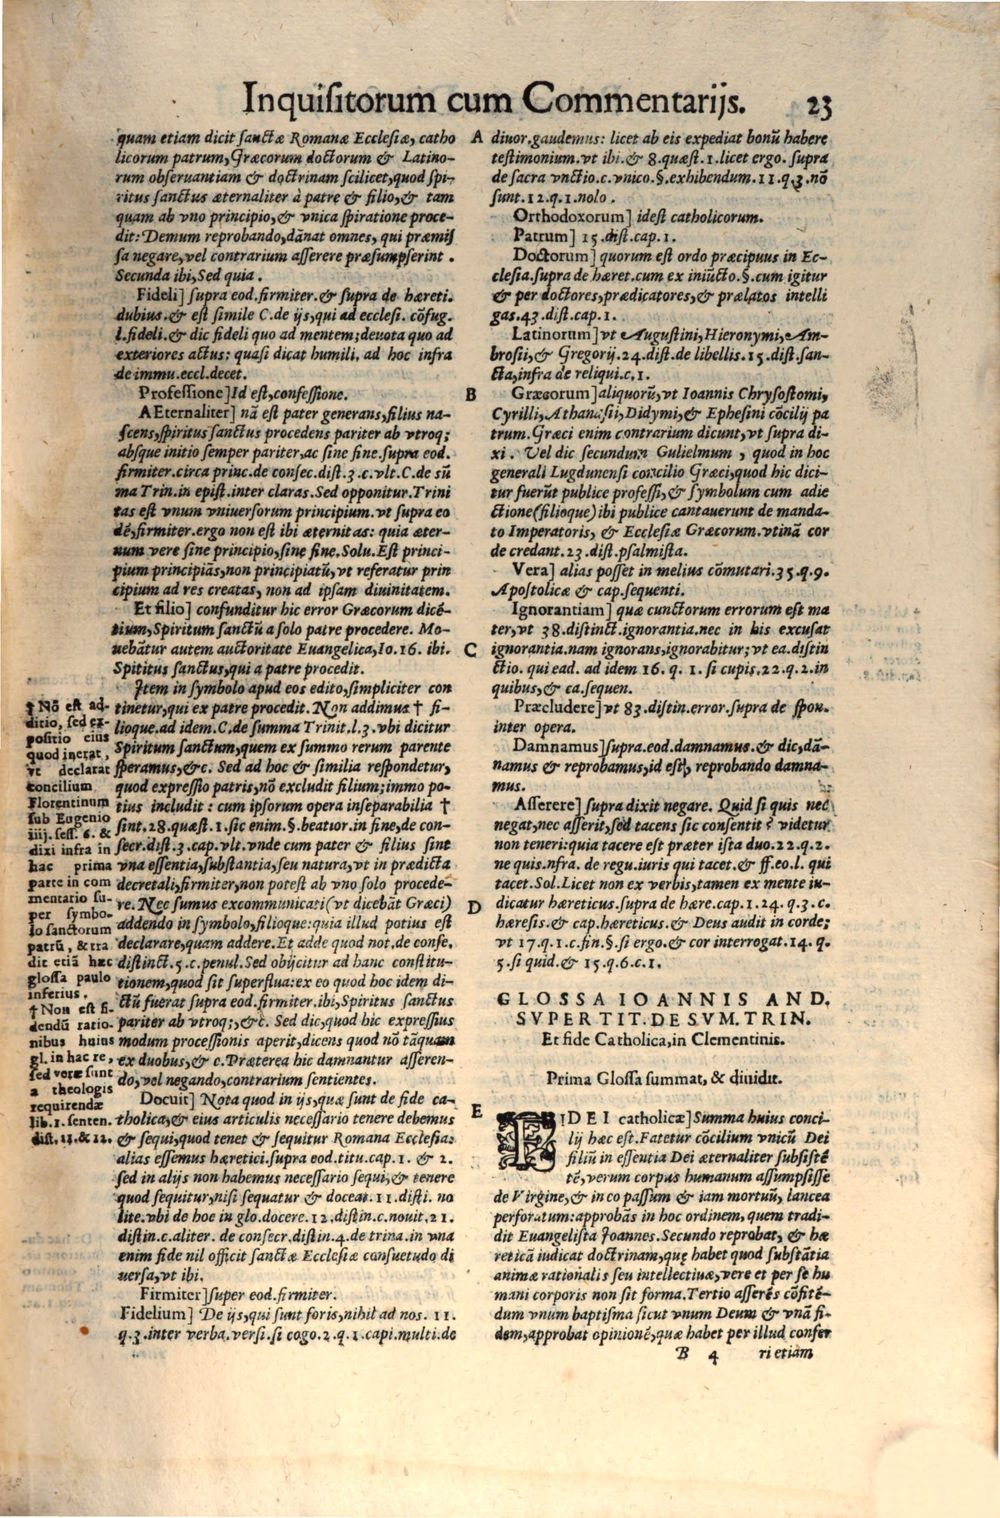 Inquisitorum cum Commentarijs. 23
quam etiam dicit sanctæ Romanæ Ecclesiæ, catho
licorum patrum, Græcorum doctorum & Latino-
rum observantiam & doctrinam scilicet, quod spi-
ritus sanctus æternaliter à patre & filio, & tam
quam ab vno principio, & vnica spiratione proce-
dit: Demum reprobando, dānat omnes, qui præmis
sa negare, vel contrarium asserere præsumpserint.
Secunda ibi, Sed quia.
Fideli] supra eod. firmiter. & supra de hæreti.
dubius. & est simile C. de ijs, qui ad ecclesi. cōfug.
l. fideli. & dic fideli quo ad mentem; deuota quo ad
exteriores actus: quasi dicat humili, ad hoc infra
de immu. eccl. decet.
Professione] Id est, confessione.
AEternaliter] nā est pater generans, filius na-
scens, spiritus sanctus procedens pariter ab vtroq;
absque initio semper pariter, ac sine fine. supra eod.
firmiter. circa princ. de consec. dist. 3. c. vlt. C. de sū
ma Trin. in epist. inter claras. Sed opponitur. Trini
tas est vnum vniuersorum principium. vt supra eo
dē, firmiter. ergo non est ibi æternitas: quia æter-
num vere sine principio, sine fine. Solu. Est princi-
pium principiās, non principiatū, vt referatur prin
cipium ad res creatas, non ad ipsam diuinitatem.
Et filio] confunditur hic error Græcorum dicē-
tium, Spiritum sanctū a solo patre procedere. Mo-
uebātur autem auctoritate Euangelica, Io. 16. ibi.
Spititus sanctus, qui a patre procedit.
Item in symbolo apud eos edito, simpliciter con
tinetur, qui ex patre procedit. Non addimus † fi-
lioque. ad idem. C. de summa Trinit. l. 3. vbi dicitur
Spiritum sanctum, quem ex summo rerum parente
speramus, &c. Sed ad hoc & similia respondetur,
quod expressio patris, nō excludit filium; immo po-
tius includit: cum ipsorum opera inseparabilia †
sint. 28. quæst. 1. sic enim. §. beatior. in fine, de con-
secr. dist. 3. cap. vlt. vnde cum pater & filius sint
vna essentia, substantia, seu natura, vt in prædicta
decretali, firmiter, non potest ab vno solo procede-
re. Nec sumus excommunicati (vt dicebāt Græci)
addendo in symbolo, filioque: quia illud potius est
declarare, quam addere. Et adde quod not. de conse.
distinct. 5. c. penul. Sed obijcitur ad hanc constitu-
tionem, quod sit superflua: ex eo quod hoc idem di-
ctū fuerat supra eod. firmiter. ibi, Spiritus sanctus
pariter ab vtroq;, &c. Sed dic, quod hic expressius
modum processionis aperit, dicens quod nō tāquam
ex duobus, & c. Præterea hic damnantur asseren-
do, vel negando, contrarium sentientes.
Docuit] Nota quod in ijs, quæ sunt de fide ca-
tholica, & eius articulis necessario tenere debemus
& sequi, quod tenet & sequitur Romana Ecclesia:
alias essemus hæretici. supra eod. titu. cap. 1. & 2.
sed in alijs non habemus necessario sequi, & tenere
quod sequitur, nisi sequatur & doceat. 11. disti. no
lite. vbi de hoc in glo. docere. 12. distin. c. nouit. 21.
distin. c. aliter. de consecr. distin. 4. de trina. in vna
enim fide nil officit sanctæ Ecclesiæ consuetudo di
uersa, vt ibi.
Firmiter] super eod. firmiter.
Fidelium] De ijs, qui sunt foris, nihil ad nos. 11.
q. 3. inter verba. versi. si cogo. 2. q. 1. capi. multi. de
† Nō est ad-
ditio, sed ex-
positio eius
quod inerat,
vt declarat
concilium
Florentinum
sub Eugenio
iiij. sess. 6. &
dixi infra in
hac prima
parte in com
mentario su-
per symbo-
lo sanctorum
patrū, & tra
dit etiā hæc
glossa paulo
inferius.
† Non est fi-
dendū ratio-
nibus huius
gl. in hac re,
sed veræ sunt
a theologis
requirendæ
lib. 1. senten.
dist. 11. & 12.
A
B
C
D
E
diuor. gaudemus: licet ab eis expediat bonū habere
testimonium. vt ibi. & 8. quæst. 1. licet ergo. supra
de sacra vnctio. c. vnico. §. exhibendum. 11. q. 3. nō
sunt. 12. q. 1. nolo.
Orthodoxorum] idest catholicorum.
Patrum] 15. dist. cap. 1.
Doctorum] quorum est ordo præcipuus in Ec-
clesia. supra de hæret. cum ex iniūcto. §. cum igitur
& per doctores, prædicatores, & prælatos intelli
gas. 43. dist. cap. 1.
Latinorum] vt Augustini, Hieronymi, Am-
brosii, & Gregorij. 24. dist. de libellis. 15. dist. san-
cta, infra de reliqui. c. 1.
Græcorum] aliquorū, vt Ioannis Chrysostomi,
Cyrilli, Athanasii, Didymi, & Ephesini cōcilij pa
trum. Græci enim contrarium dicunt, vt supra di-
xi. Vel dic secundum Gulielmum, quod in hoc
generali Lugdunensi concilio Græci, quod hic dici-
tur fuerūt publice professi, & symbolum cum adie
ctione (filioque) ibi publice cantauerunt de manda-
to Imperatoris, & Ecclesiæ Græcorum. vtinā cor
de credant. 23. dist. psalmista.
Vera] alias posset in melius cōmutari. 35. q. 9.
Apostolicæ & cap. sequenti.
Ignorantiam] quæ cunctorum errorum est ma
ter, vt 38. distinct. ignorantia. nec in his excusat
ignorantia. nam ignorans, ignorabitur; vt ea. distin
ctio. qui ead. ad idem 16. q. 1. si cupis. 22. q. 2. in
quibus, & ca. sequen.
Præcludere] vt 83. distin. error. supra de spon.
inter opera.
Damnamus] supra. eod. damnamus. & dic, dā-
namus & reprobamus, id est, reprobando damna-
mus.
Asserere] supra dixit negare. Quid si quis nec
negat, nec asserit, sed tacens sic consentit? videtur
non teneri: quia tacere est præter ista duo. 22. q. 2.
ne quis. nfra. de regu. iuris qui tacet. & ff. eo. l. qui
tacet. Sol. Licet non ex verbis, tamen ex mente iu-
dicatur hæreticus. supra de hære. cap. 1. 24. q. 3. c.
hæresis. & cap. hæreticus. & Deus audit in corde;
vt 17. q. 1. c. fin. §. si ergo. & cor interrogat. 14. q.
5. si quid. & 15. q. 6. c. 1.
GLOSSA IOANNIS AND.
SVPER TIT. DE SVM. TRIN.
Et fide Catholica, in Clementinis.
Prima Glossa summat, & diuidit.
FIDEI catholicæ] Summa huius conci-
lij hæc est. Fatetur cōcilium vnicū Dei
filiū in essentia Dei æternaliter subsistē
tē, verum corpus humanum assumpsisse
de Virgine, & in co passum & iam mortuū, lancea
perforatum: approbās in hoc ordinem, quem tradi-
dit Euangelista Ioannes. Secundo reprobat, & hæ
reticā iudicat doctrinam, quę habet quod substātia
animæ rationalis seu intellectiuæ, vere et per se hu
mani corporis non sit forma. Tertio asserēs cōfitē-
dum vnum baptisma sicut vnum Deum & vnā fi-
dem, approbat opinionē, quæ habet per illud confer
B 4 ri etiam